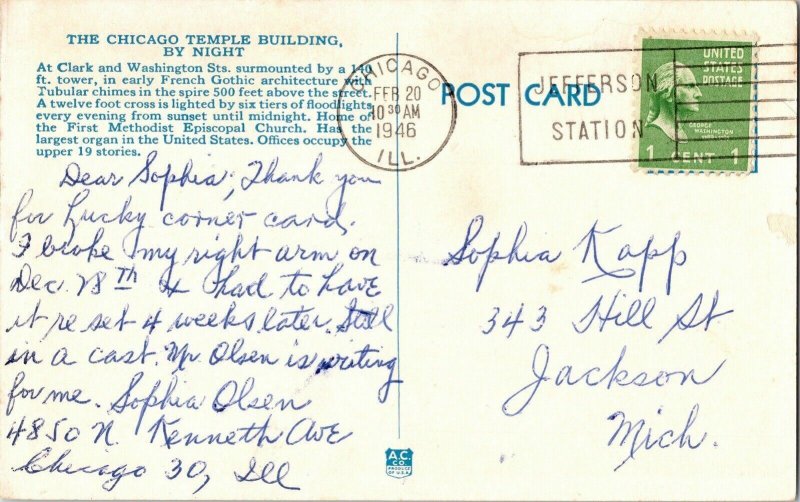 THE CHICAGO TEMPLE BUILDING,
BY NIGHT
At Clark and Washington Sts. surmounted by a 140
ft. tower, in early French Gothic architecture with
Tubular chimes in the spire 500 feet above the street.
A twelve foot cross is lighted by six tiers of floodlights
every evening from sunset until midnight. Home of
the First Methodist Episcopal Church. Has the
largest organ in the United States. Offices occupy the
upper 19 stories.
CHICAGO
FEB 20
10 30 AM
1946
ILL.
POST CARD
JEFFERSON
STATION
UNITED
STATES
POSTAGE
GEORGE
WASHINGTON
1 CENT 1
Dear Sophia, Thank you
for Lucky corner card.
I broke my right arm on
Dec. 28th & had to have
it re set 4 weeks later. Still
in a cast. Mr. Olsen is writing
for me. Sophia Olsen
4850 N. Kenneth Ave
Chicago 30, Ill
Sophia Kapp
343 Hill St
Jackson
Mich.
A.C.
CO
PRODUCE
OF U.S.A.